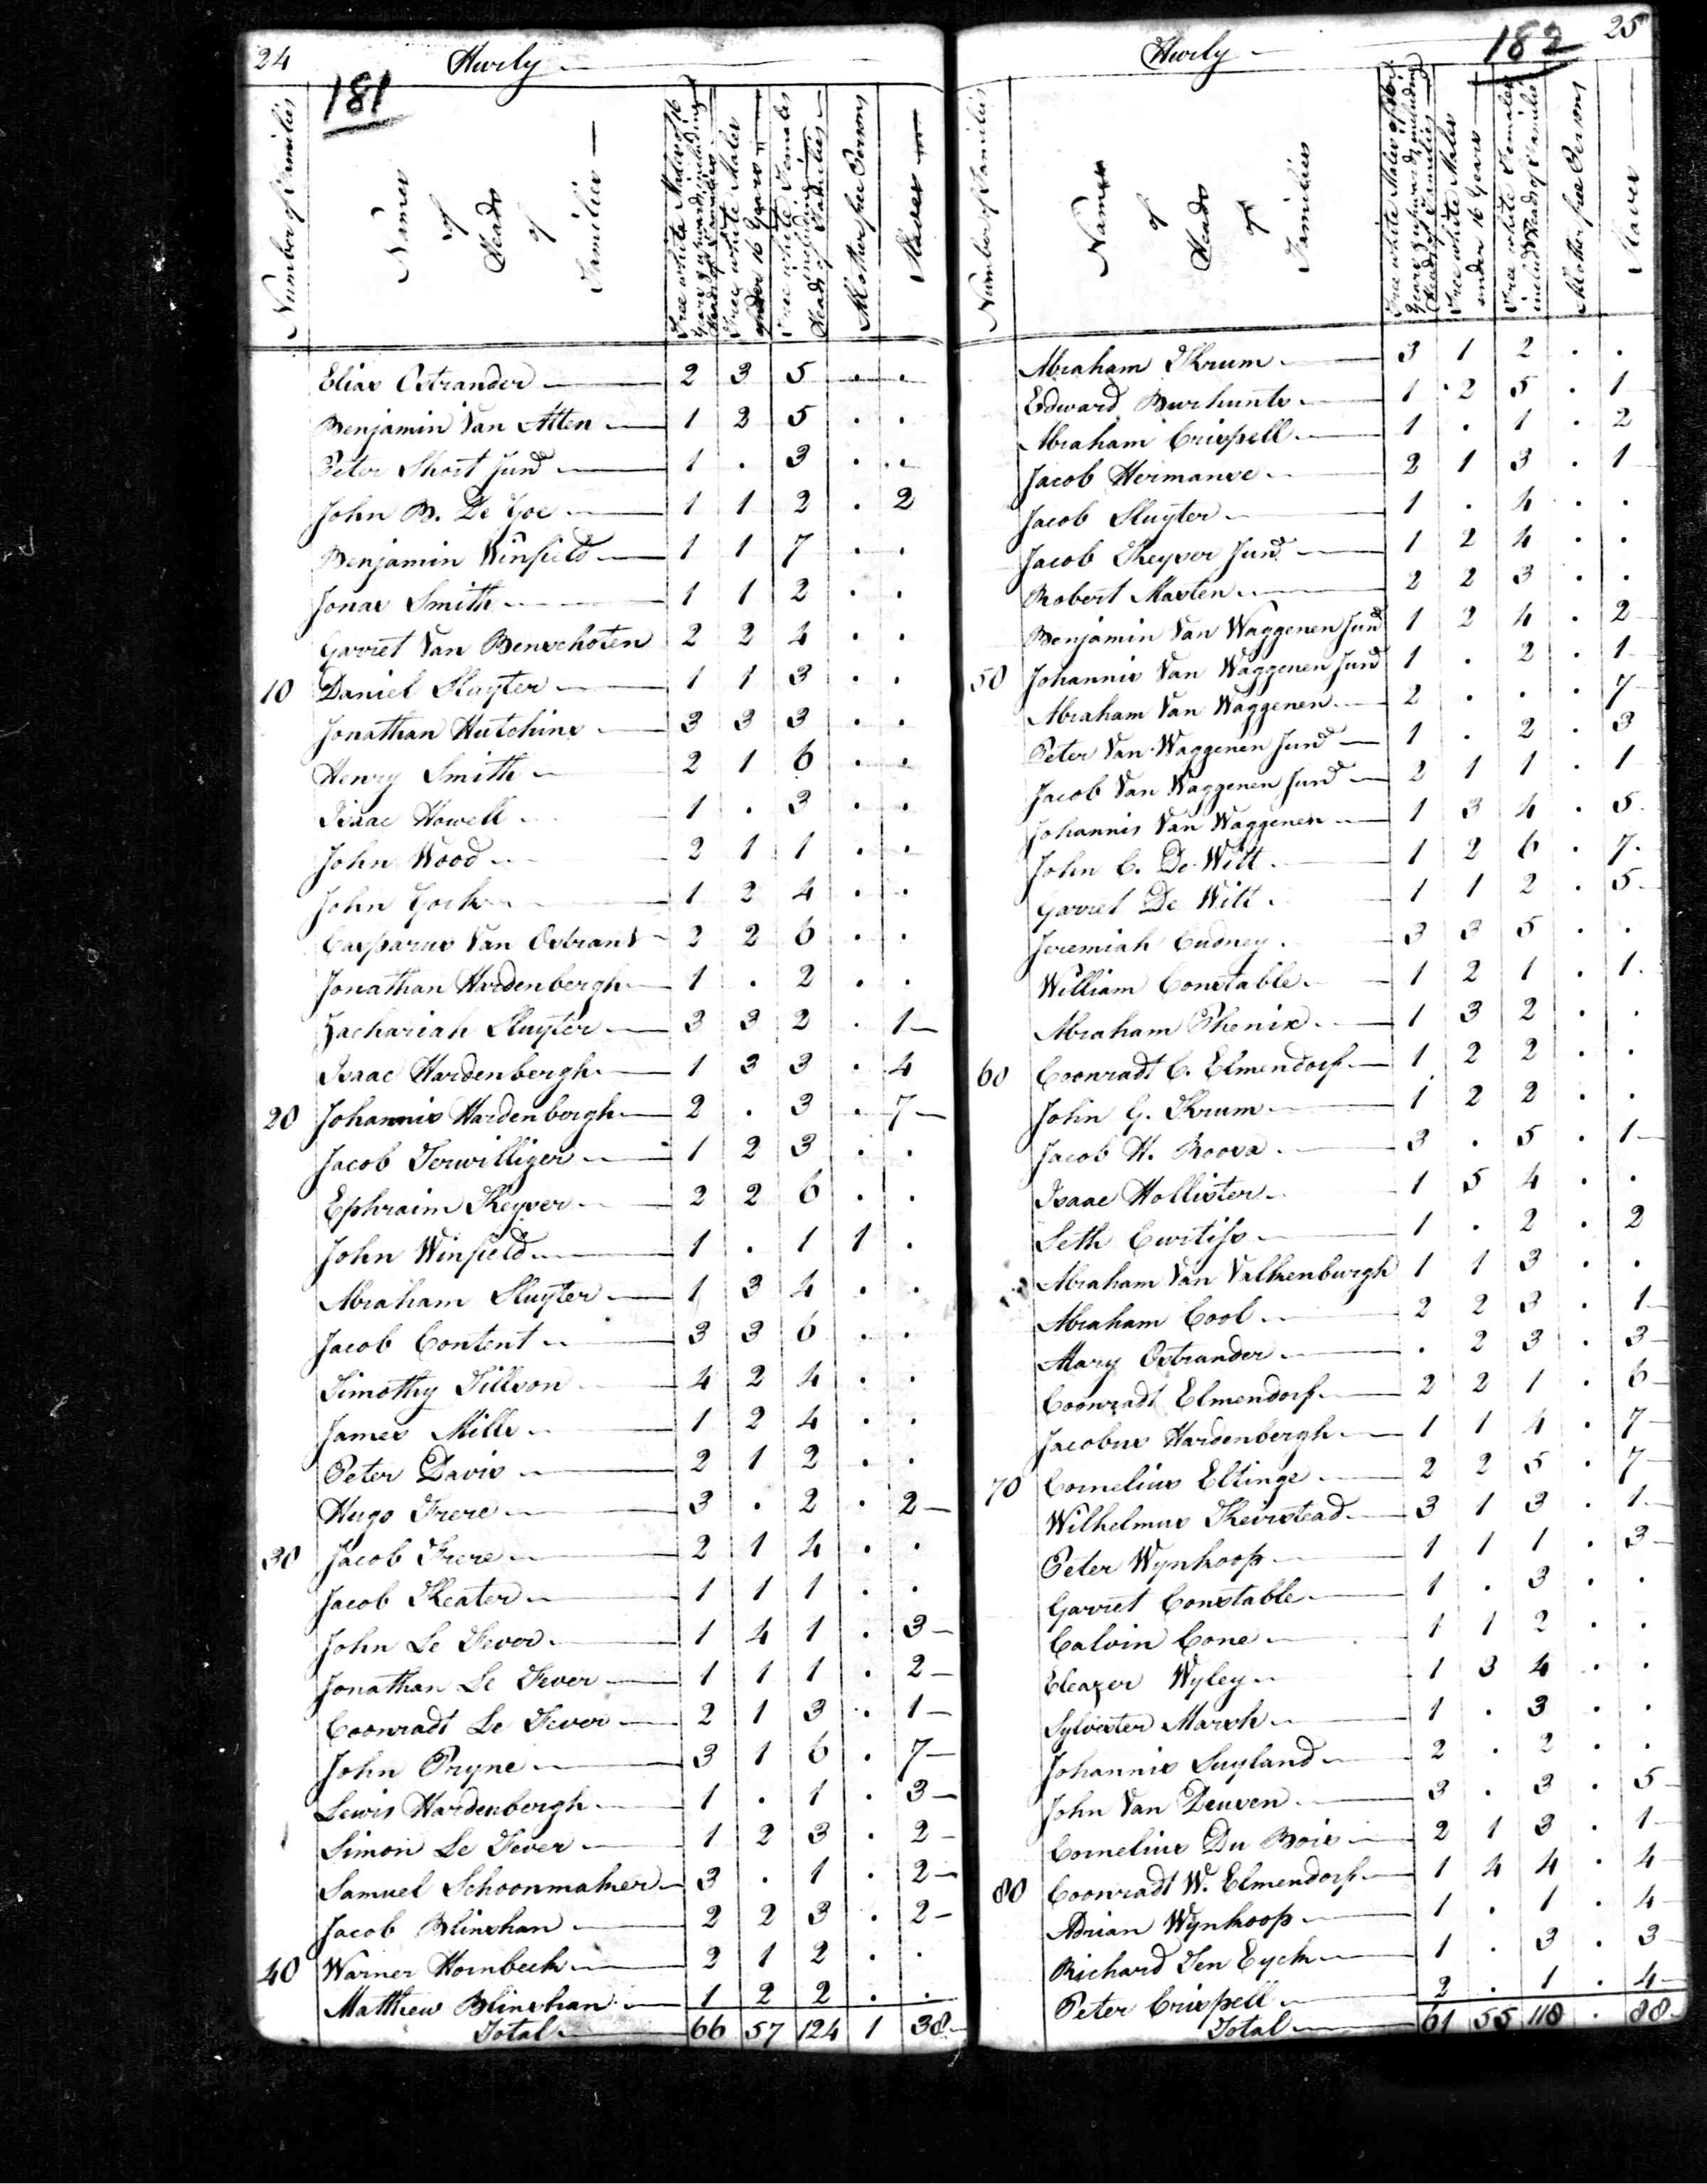 24 Hurly
181
Number of Families
Names of Heads of Families
Free white Males of 16 Years & upwards including Heads of Families
Free white Males under 16 Years
Free white Females including Heads of Families
All other free Persons
Slaves
Elias Ostrander 2 3 5 . .
Benjamin Van Atten 1 2 5 . .
Peter Short Jun^d 1 . 3 . .
John B. De Yoe 1 1 2 . 2
Benjamin Winfield 1 1 7 . .
Jonas Smith 1 1 2 . .
Garret Van Benschoten 2 2 4 . .
10 Daniel Sluyter 1 1 3 . .
Jonathan Hutchins 3 3 3 . .
Henry Smith 2 1 6 . .
Isaac Howell 1 . 3 . .
John Wood 2 1 1 . .
John York 1 2 4 . .
Casparus Van Ostrand 2 2 6 . .
Jonathan Hardenbergh 1 . 2 . .
Zachariah Sluyter 3 3 2 . 1
Isaac Hardenbergh 1 3 3 . 4
20 Johannis Hardenbergh 2 . 3 . 7
Jacob Terwilliger 1 2 3 . .
Ephraim Keyser 2 2 6 . .
John Winfield 1 . 1 1 .
Abraham Sluyter 1 3 4 . .
Jacob Content 3 3 6 . .
Timothy Tillson 4 2 4 . .
James Mills 1 2 4 . .
Peter Davis 2 1 2 . .
Hugo Frere 3 . 2 . 2
30 Jacob Frere 2 1 4 . .
Jacob Keater 1 1 1 . .
John Le Fever 1 4 1 . 3
Jonathan Le Fever 1 1 1 . 2
Coonradt Le Fever 2 1 3 . 1
John Pryne 3 1 6 . 7
Lewis Hardenbergh 1 . 1 . 3
Simon Le Fever 1 2 3 . 2
Samuel Schoonmaker 3 . 1 . 2
Jacob Blinshan 2 2 3 . 2
40 Warner Hornbeek 2 1 2 . .
Matthew Blinshan 1 2 2 . .
Total 66 57 124 1 38
Hurly 182 25
Number of Families
Names of Heads of Families
Free white Males of 16 Years & upwards including Heads of Families
Free white Males under 16 Years
Free white Females including Heads of Families
All other free Persons
Slaves
Abraham Krum 3 1 2 . .
Edward Burhunts 1 2 5 . 1
Abraham Crispell 1 . 1 . 2
Jacob Hermanse 2 1 3 . 1
Jacob Sluyter 1 . 4 . .
Jacob Keyser Jun^d 1 2 4 . .
Robert Masten 2 2 3 . .
Benjamin Van Waggenen Jun^d 1 2 4 . 2
50 Johannis Van Waggenen Jun^d 1 . 2 . 1
Abraham Van Waggenen 2 . . . 7
Peter Van Waggenen Jun^d 1 . 2 . 3
Jacob Van Waggenen Jun^d 2 1 1 . 1
Johannis Van Waggenen 1 3 4 . 5
John C. De Witt 1 2 6 . 7
Garret De Witt 1 1 2 . 5
Jeremiah Cudney 3 3 5 . .
William Constable 1 2 1 . 1
Abraham Phenix 1 3 2 . .
60 Coonradt C. Elmendorf 1 2 2 . .
John G. Krum 1 2 2 . .
Jacob H. Roosa 3 . 5 . 1
Isaac Hollister 1 5 4 . .
Seth Curtiss 1 . 2 . 2
Abraham Van Valkenburgh 1 1 3 . .
Abraham Cool 2 2 3 . 1
Mary Ostrander . 2 3 . 3
Coonradt Elmendorf 2 2 1 . 6
Jacobus Hardenbergh 1 1 4 . 7
70 Cornelius Eltinge 2 2 5 . 7
Wilhelmus Keirstead 3 1 3 . 1
Peter Wynkoop 1 1 1 . 3
Garret Constable 1 . 3 . .
Calvin Cone 1 1 2 . .
Eleazer Wyley 1 3 4 . .
Sylvester Marsh 1 . 3 . .
Johannis Suyland 2 . 2 . .
John Van Deusen 3 . 3 . 5
Cornelius Du Bois 2 1 3 . 1
80 Coonradt W. Elmendorf 1 4 4 . 4
Adrian Wynkoop 1 . 1 . 4
Richard Ten Eyck 1 . 3 . 3
Peter Crispell 2 . 1 . 4
Total 61 55 118 . 88